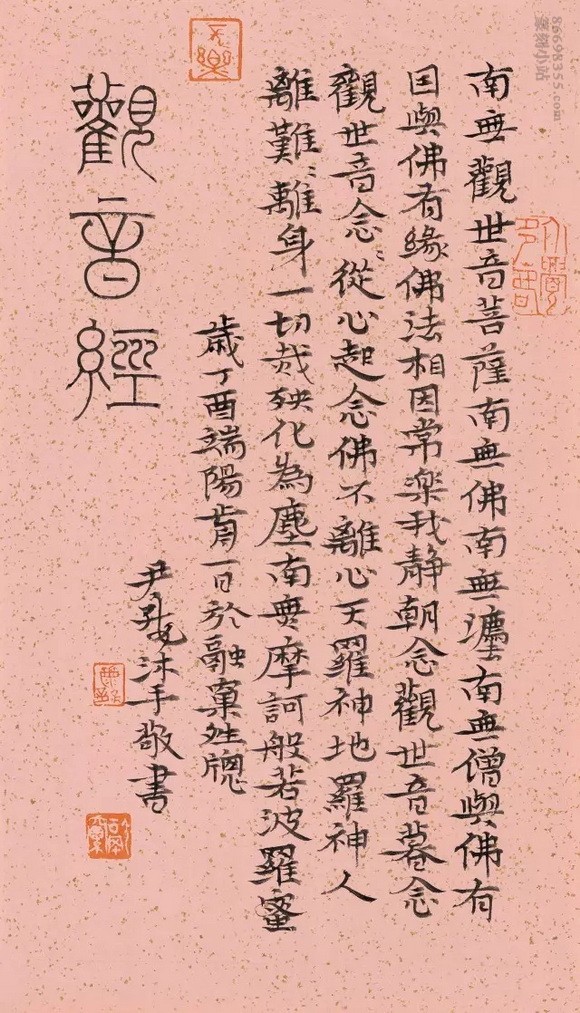 南無觀世音菩薩南無佛南無灋南無僧與佛有
因與佛有緣佛法相因常樂我静朝念觀世音暮念
觀世音念〻從心起念佛不離心天羅神地羅神人
離難〻離身一切烖殃化為塵南無摩訶般若波羅蜜
歲丁酉端陽前一日於融牕
尹沐手敬書
觀音經
86698355.com
篆刻小站